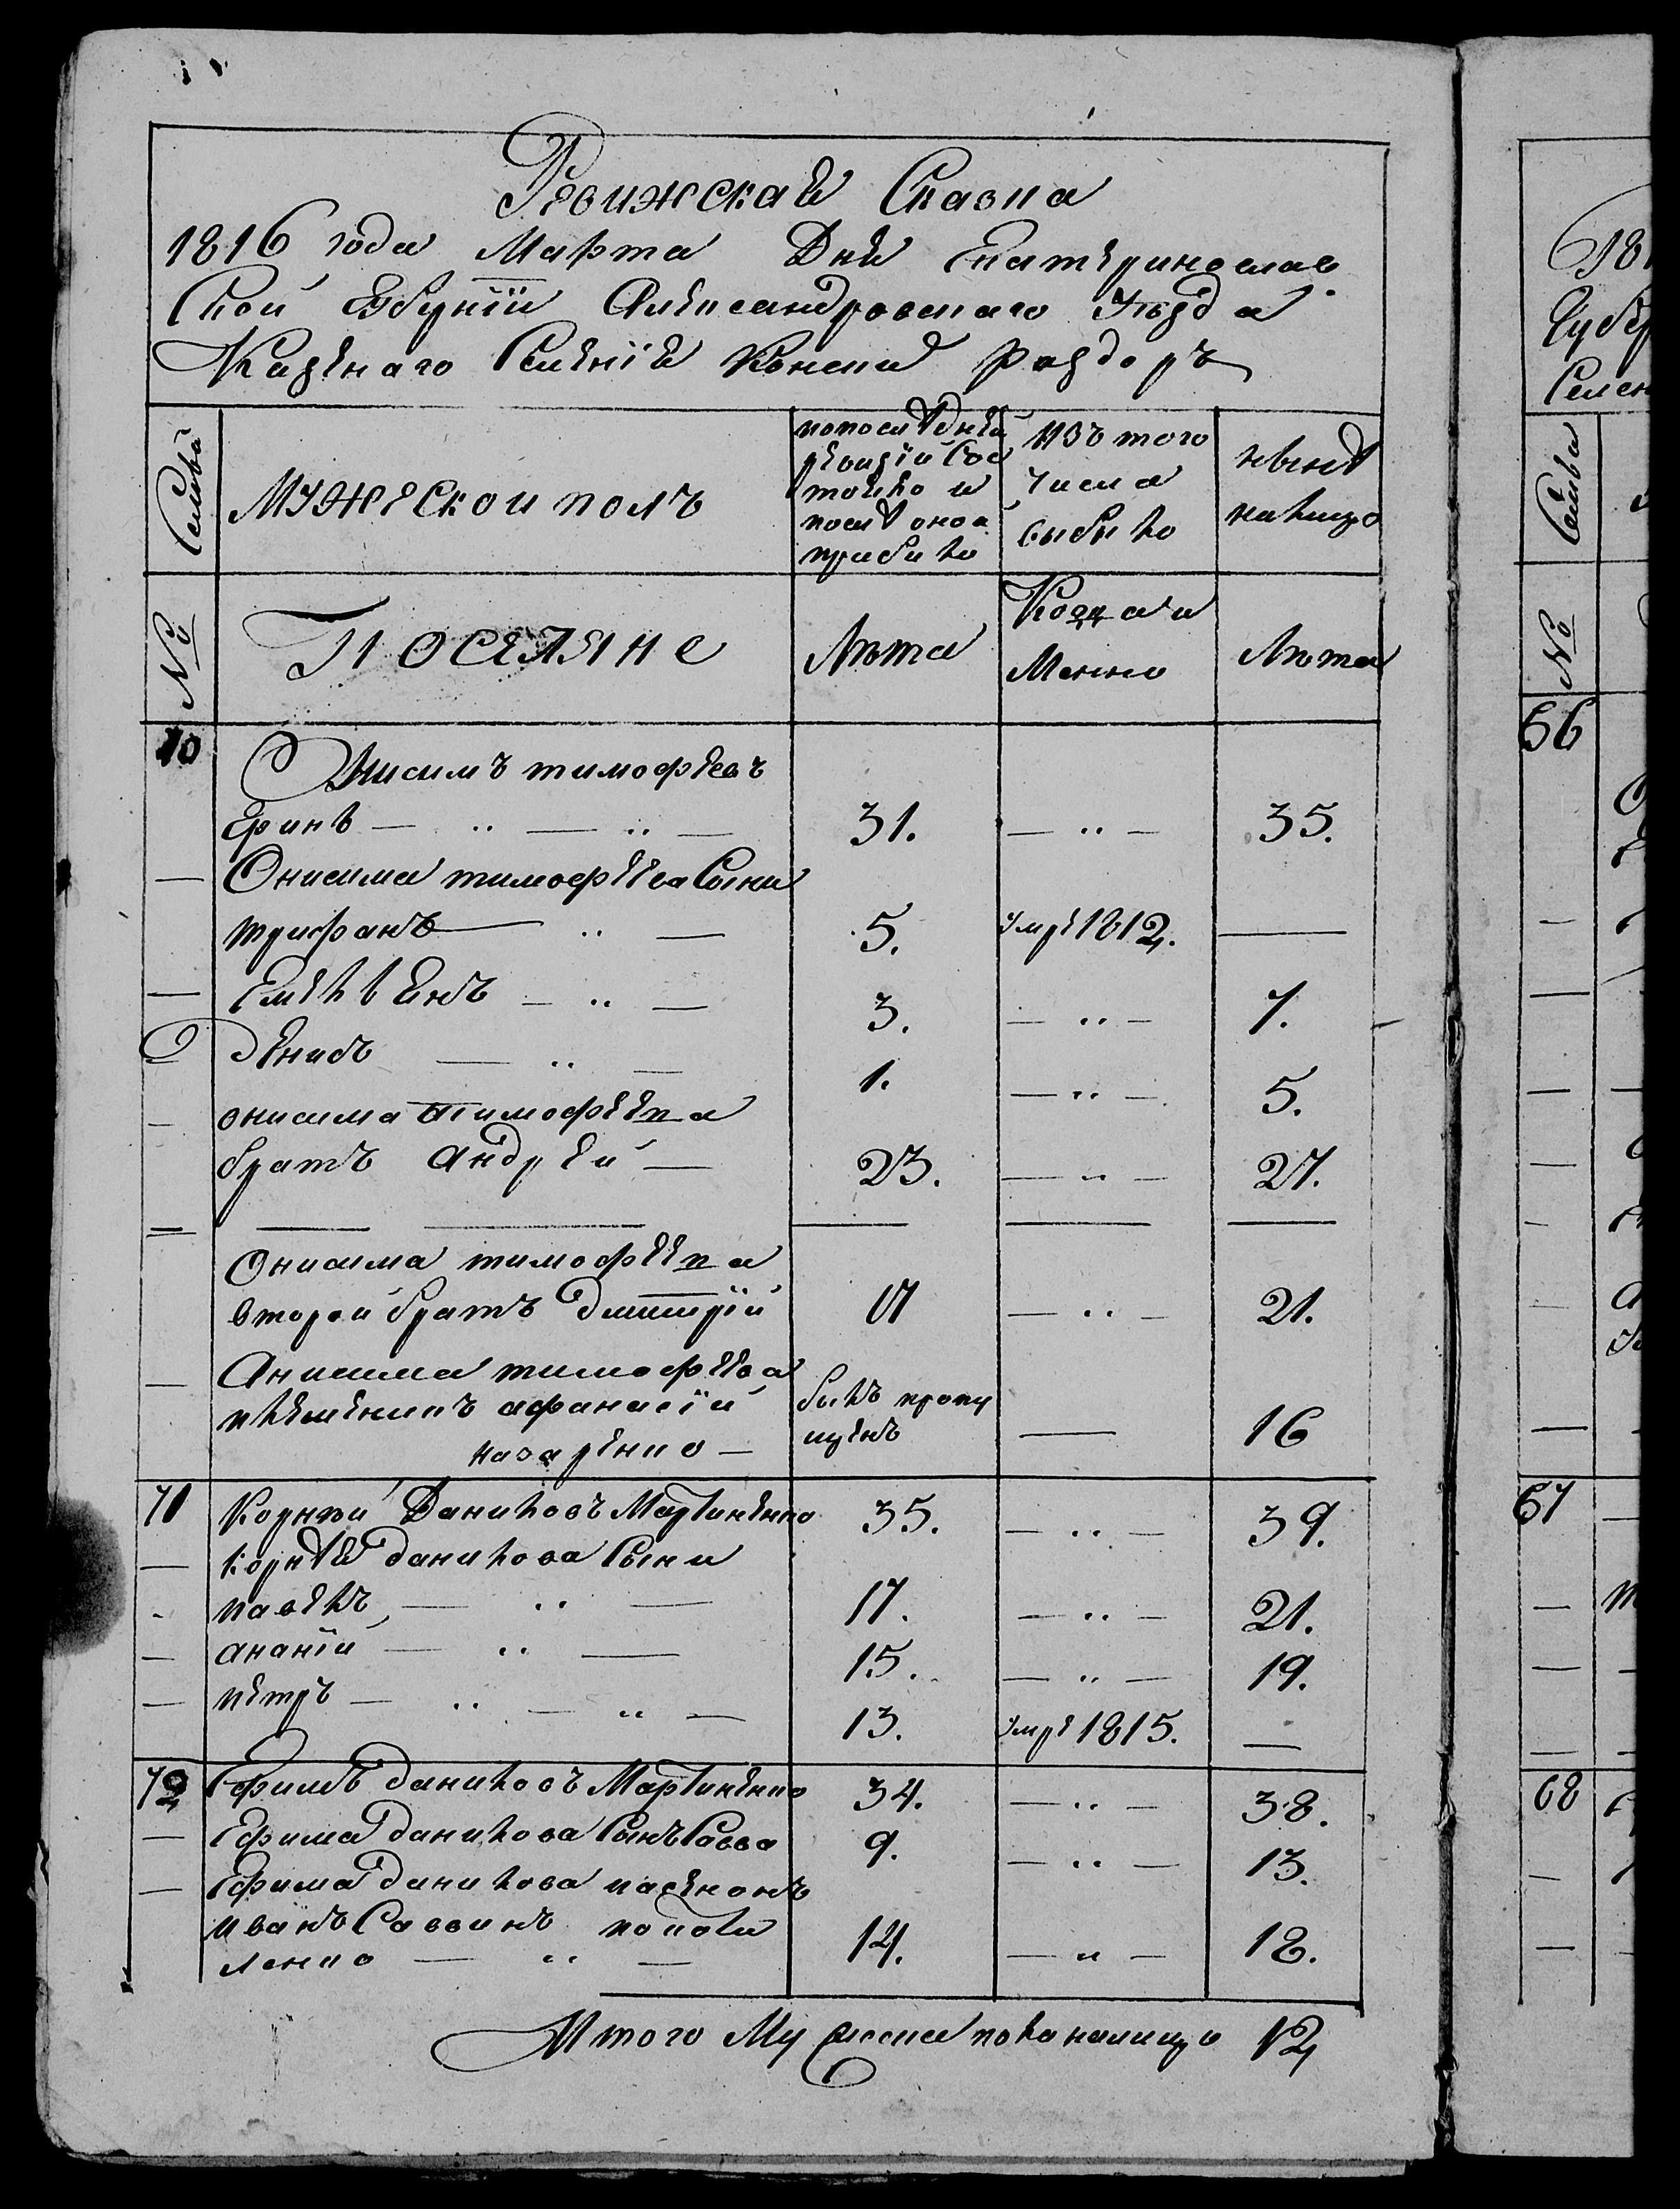 Ревижская Сказка
1816 года Марта Дня Екатеринослав
ской Губернїи Александровскаго Уѣзда
Казенаго Селенїя Конски Раздоръ
Семьи
Мужескои полъ
попослѣдней
ревизїи Сос
тояло и
послѣ оной
прибыло
Изъ того
числа
выбыло
нынѣ
налицо
№
Поселяне
Лѣта
Когда и
Менно
Лѣта
70
Онисимъ тимофеевъ
Еринъ — ·· — ·· — 31. — ·· — 35.
— Онисима тимофеева Сыни
трифанъ — ·· — 5. умре 1812. —
— Емельянъ — ·· — 3. — ·· — 7.
Денисъ — ·· — 1. — ·· — 5.
— онисима тимофеева
братъ андрей — 23. — ·· — 27.
Онисима тимофеева
второй братъ дмитрїй 17 — ·· — 21.
— Анисима тимофеева
племеникъ афанасїй былъ пропу
назаренко — щенъ — 16
71 Корнѣй Даниловъ Мартиненко 35. — ·· — 39.
— корнѣя данилова Сыни
павелъ — ·· — 17. — ·· — 21.
— ананїй — ·· — 15. — ·· — 19.
— петръ — ·· — ·· — 13. умре 1815. —
72 Ефимъ даниловъ Мартиненко 34. — ·· — 38.
— Ефима данилова Сынъ Савва 9. — ·· — 13.
— Ефима данилова пасенокъ
иванъ Саввинъ
ленко — ·· — 14. — ·· — 18.
Итого Мужеска пола налицо 12
181
Губер
Селен
Семьи
№
66
67
68